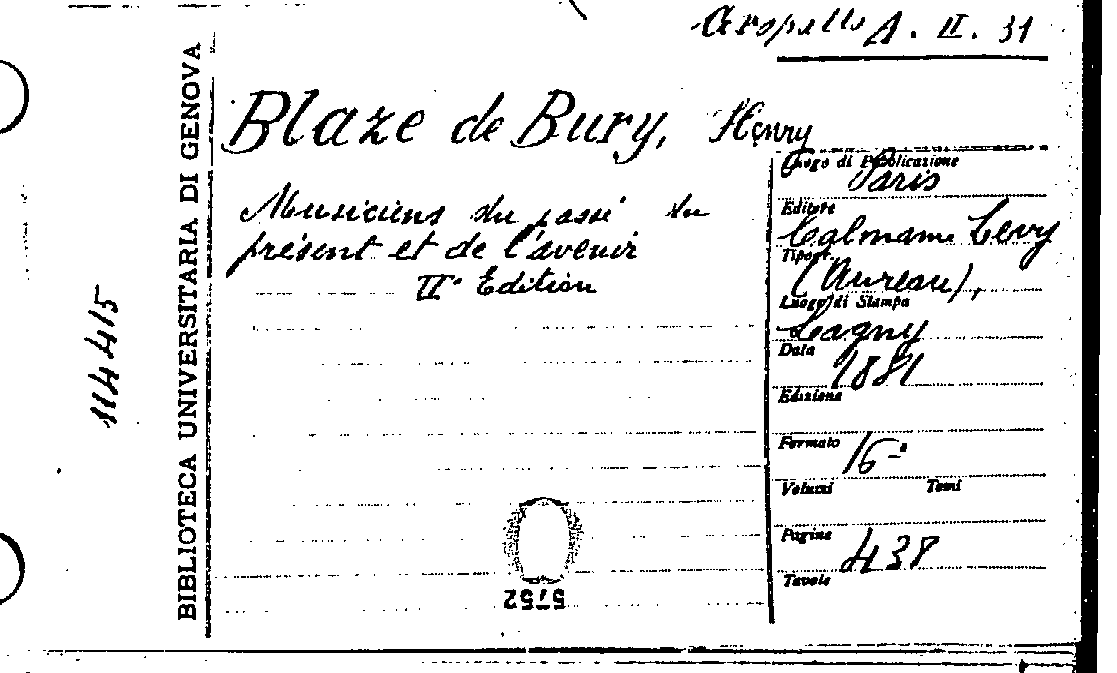 Acropello A. II. 31
BIBLIOTECA UNIVERSITARIA DI GENOVA
114415
Blaze de Bury, Henry
Musiciens du passé du
présent et de l'avenir
IIe Edition
Luogo di Pubblicazione
Paris
Editore
Calmann Levy
Tipogr.
(Aureau),
Luogo di Stampa
Lagny
Data
1881
Edizione
Formato
16°
Volumi Tomi
Pagine
438
Tavole
5752